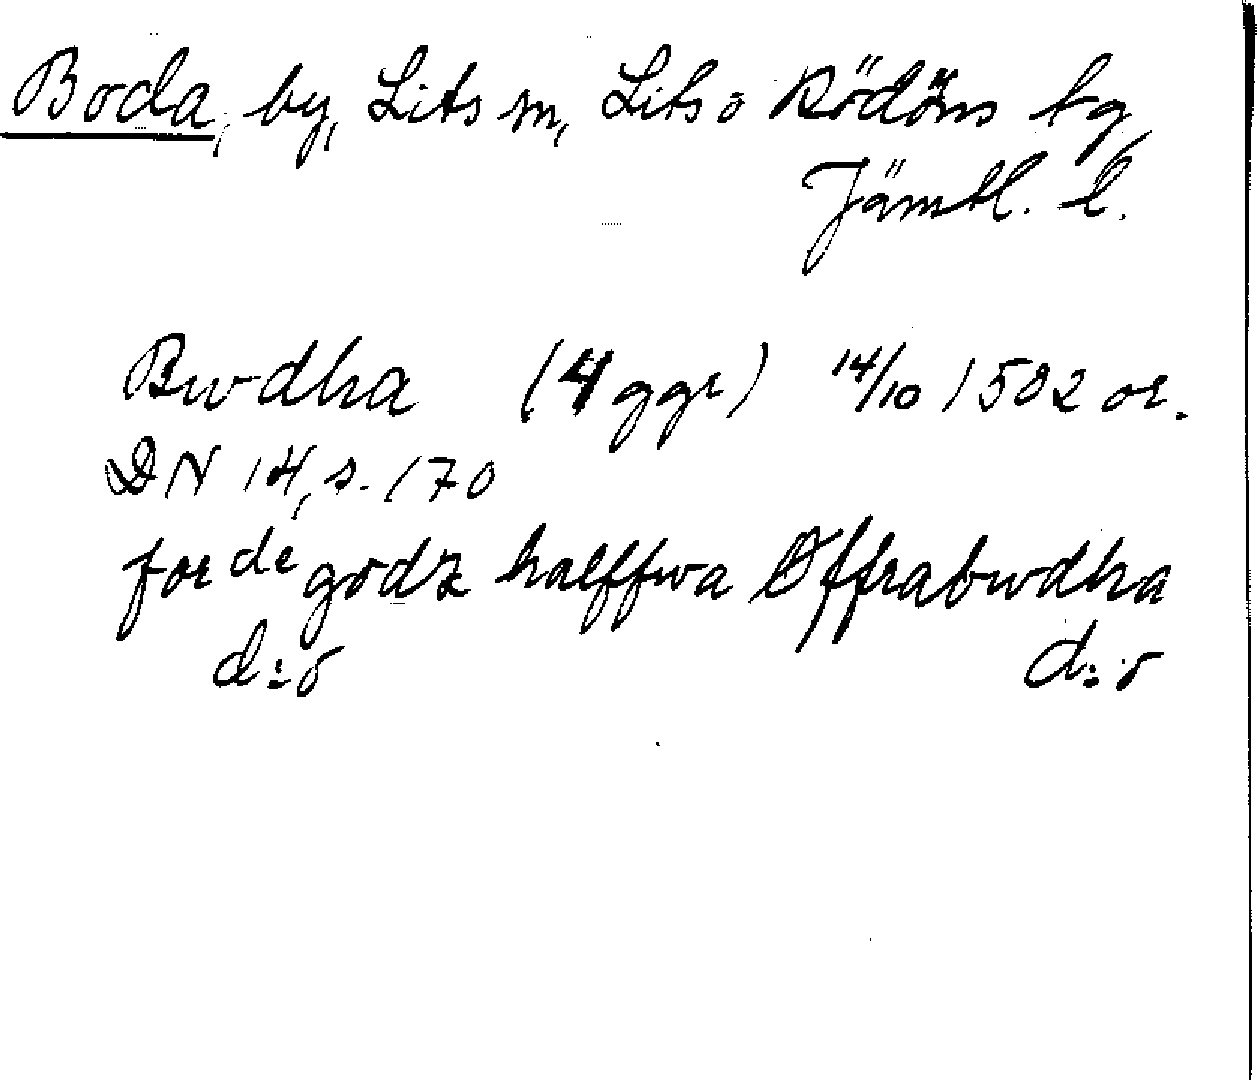 Boda, by, Lits sn, Lits o Rödöns tg
Jämtl. l.
Bwdha (4 ggr) 14/10 1502 or.
DN 14, s. 170
for de godz halffwa Offrabwdha
d:o d:o